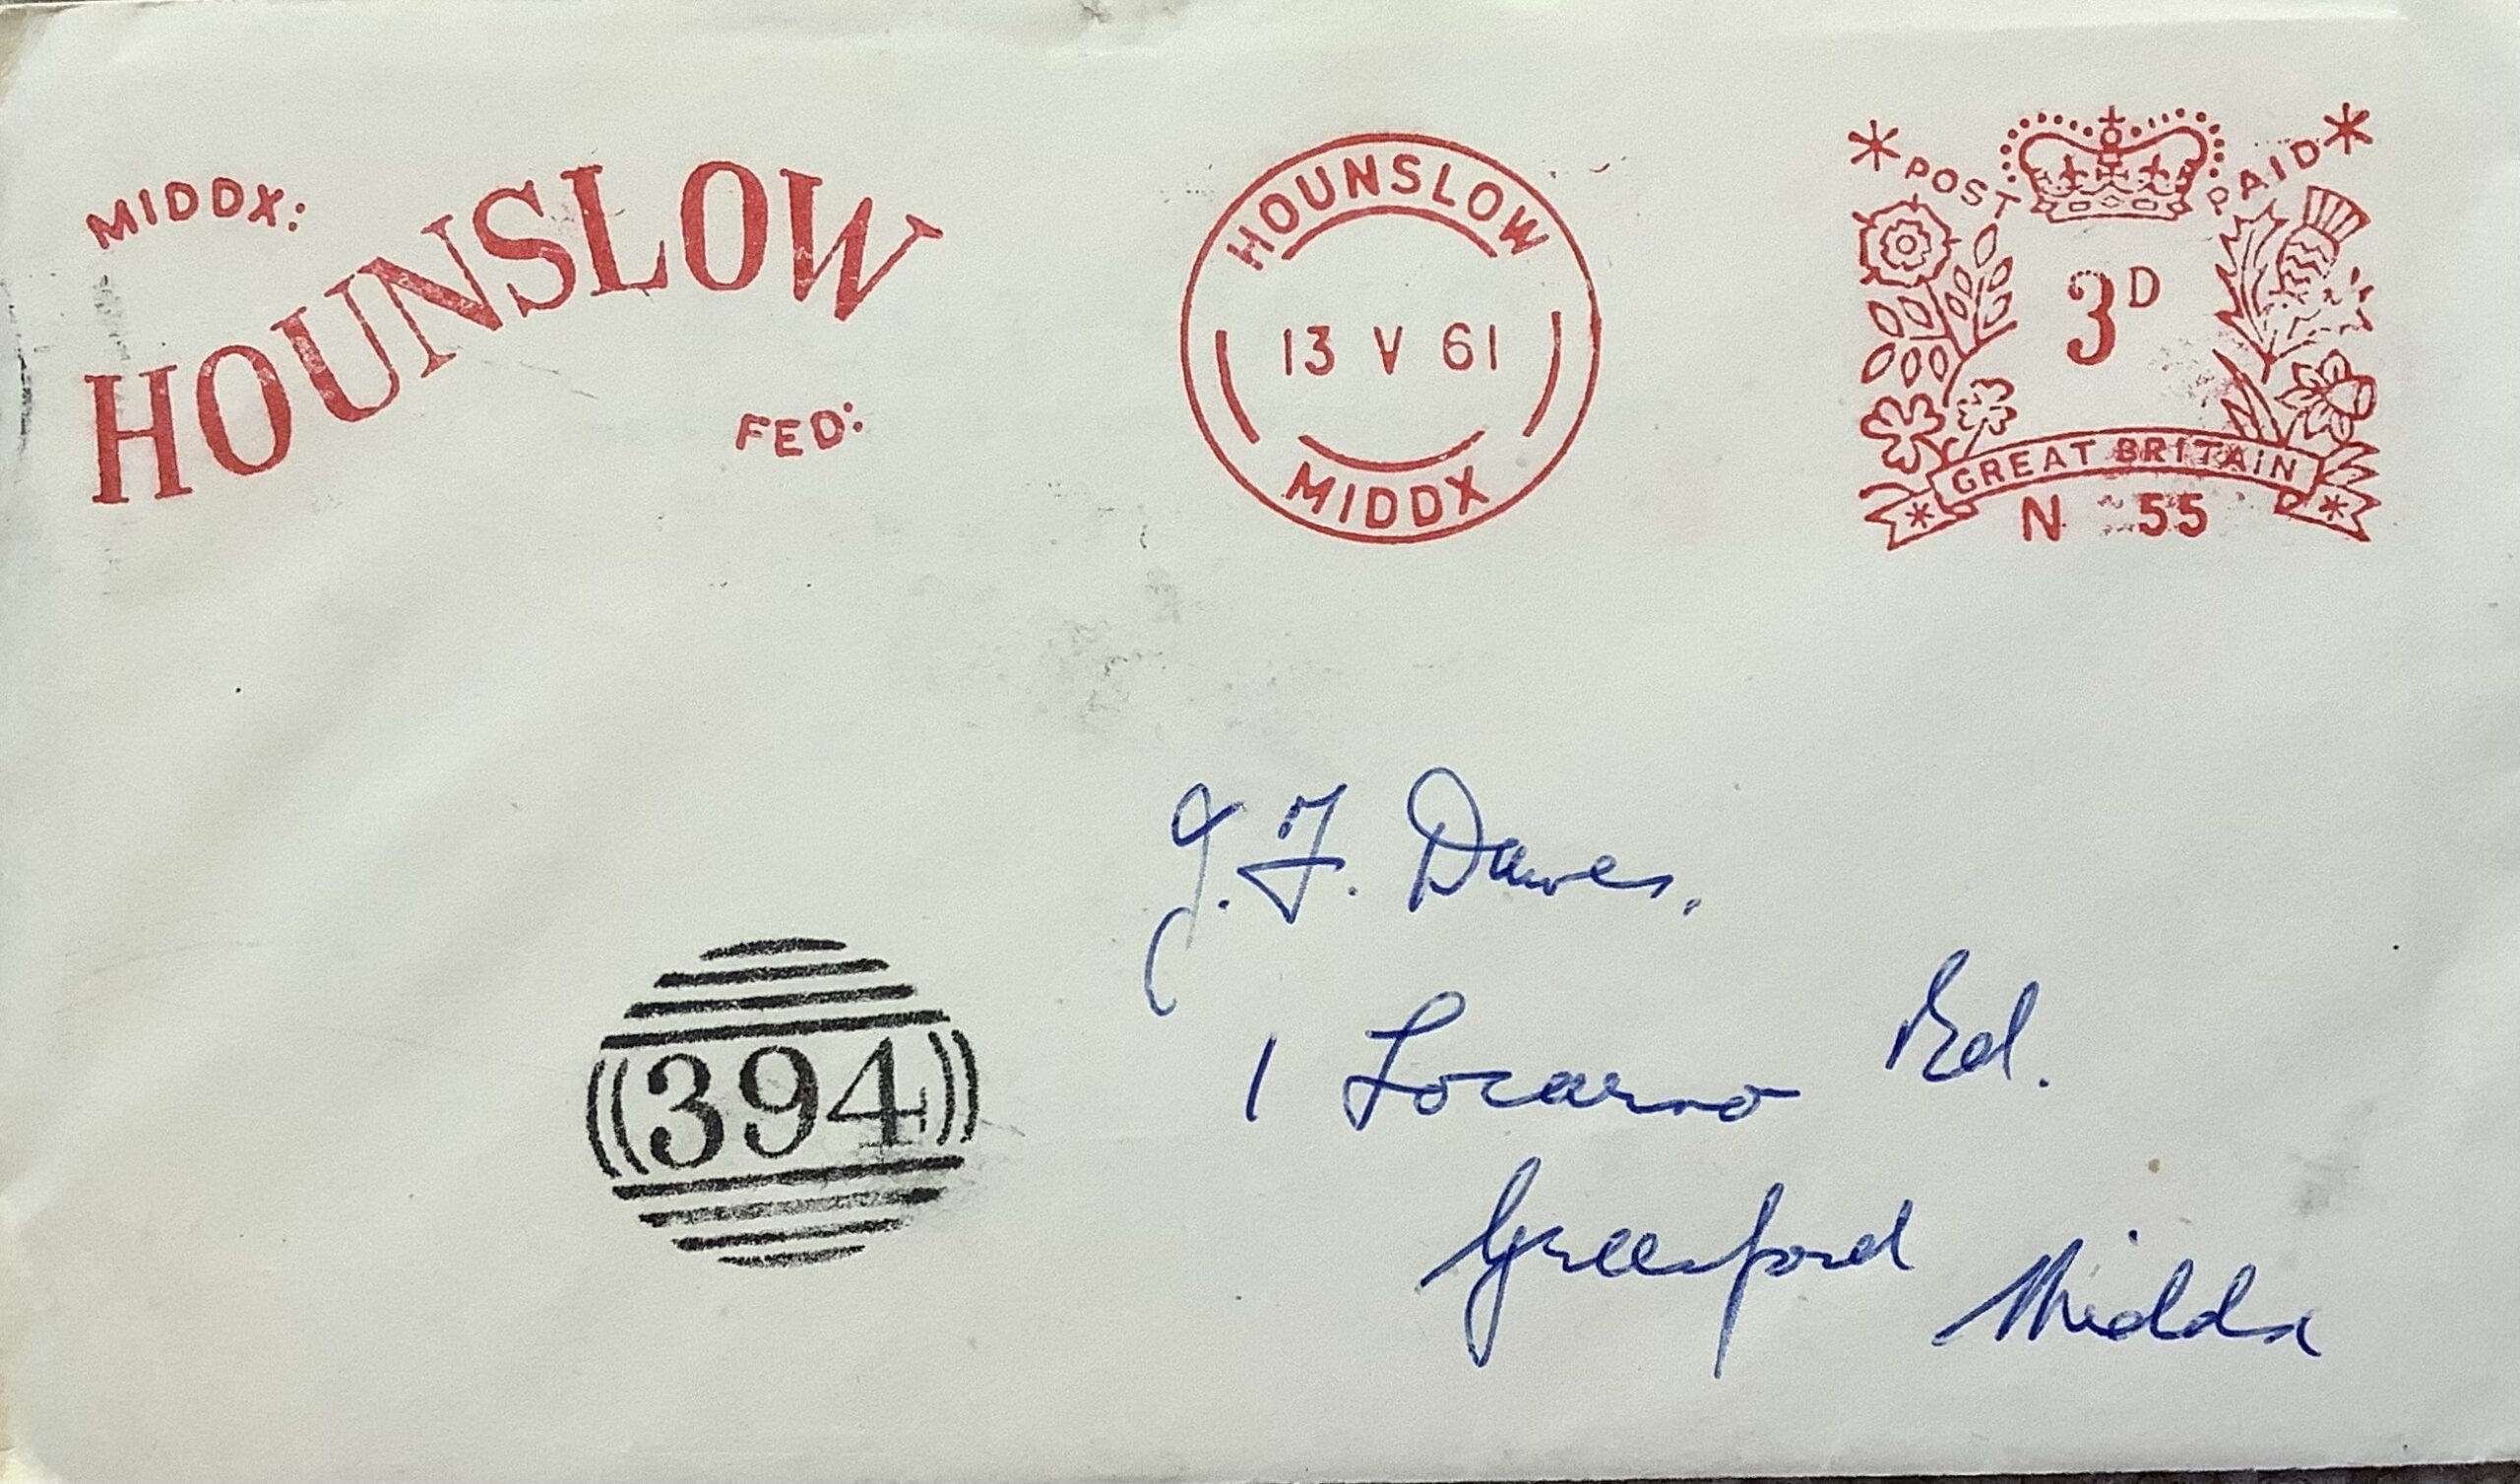 MIDDX:
HOUNSLOW
FED:
HOUNSLOW
13 V 61
MIDDX
* POST PAID *
3D
GREAT BRITAIN
N 55
394
J. F. Dawes.
1 Locarno Rd.
Greenford Middx